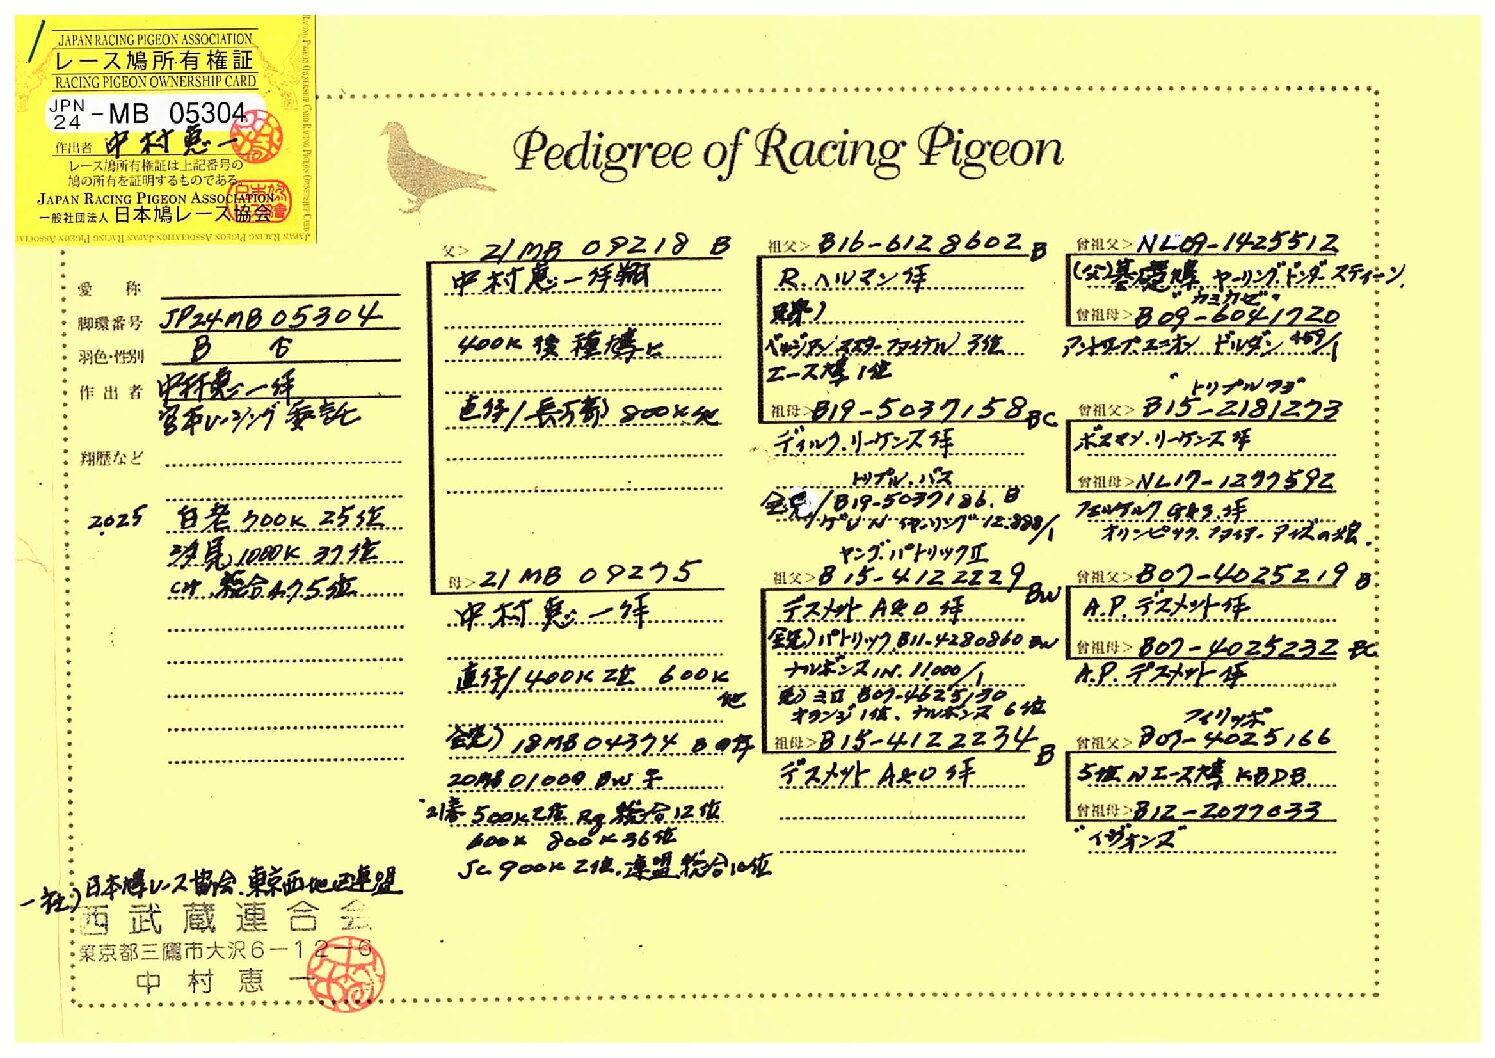 JAPAN RACING PIGEON ASSOCIATION
レース鳩所有権証
RACING PIGEON OWNERSHIP CARD
JPN 24 -MB 05304
作出者 中村恵一
レース鳩所有権証は上記番号の
鳩の所有を証明するものである
JAPAN RACING PIGEON ASSOCIATION
一般社団法人 日本鳩レース協会
Pedigree of Racing Pigeon
愛称
脚環番号 JP24MB05304
羽色・性別 B ♀
作出者 中村恵一作
宮本レーシング委託
翔歴など
2025 白老700K 25位
汐見1000K 37位
CH 総合475位
父> 21MB 09218 B
中村恵一作翔
400K 後種鳩と
直仔/ 長万部 800K他
母> 21MB 09275
中村恵一作
直仔/400K 2位 600K
他
全兄) 18MB04374 B
20MB01009 BW 子
'21春 500K2位 Rg 総合12位
600K 800K36位
JC 900K 2位.連盟総合10位
祖父> B16-6128602 B
R.ヘルマン作
ベルジアンマスターファイナル 3位
エース鳩1位
祖母> B19-5037158 BC
ディルク.リーケンス作
トリプル.バス
全兄/B19-5037186.B
アングレームN イヤリング12.888/1
ヤング.パトリックII
祖父> B15-4122229 BW
デスメット A&O 作
全兄)パトリック.B11-4280860 BW
ナルボンヌIN.11.000/1
兄)ミロ B07-4625130
オランジ1位.ナルボンヌ 6位
祖母> B15-4122234 B
デスメット A&O 作
曾祖父> NL09-1425512
(父)基礎鳩 ヤーリング.ドンダースティーン.
"カミカゼ"
曾祖母> B09-6041720
アントワープユニオン ドルダン 459/1
"トリプルワヨ"
曾祖父> B15-2181273
ボスマン.リーケンス作
曾祖母> NL17-1277592
フェルケルク G&S.作
オリンピック.ファイヤーアイズの娘.
曾祖父> B07-4025219 B
A.P. デスメット作
曾祖母> B07-4025232 BC
A.P. デスメット作
フィリッポ
曾祖父> B07-4025166
5位Nエース鳩 KBDB.
曾祖母> B12-2077033
"イジオンズ"
一社)日本鳩レース協会.東京西地区連盟
西武蔵連合会
東京都三鷹市大沢6-12-6
中村恵一